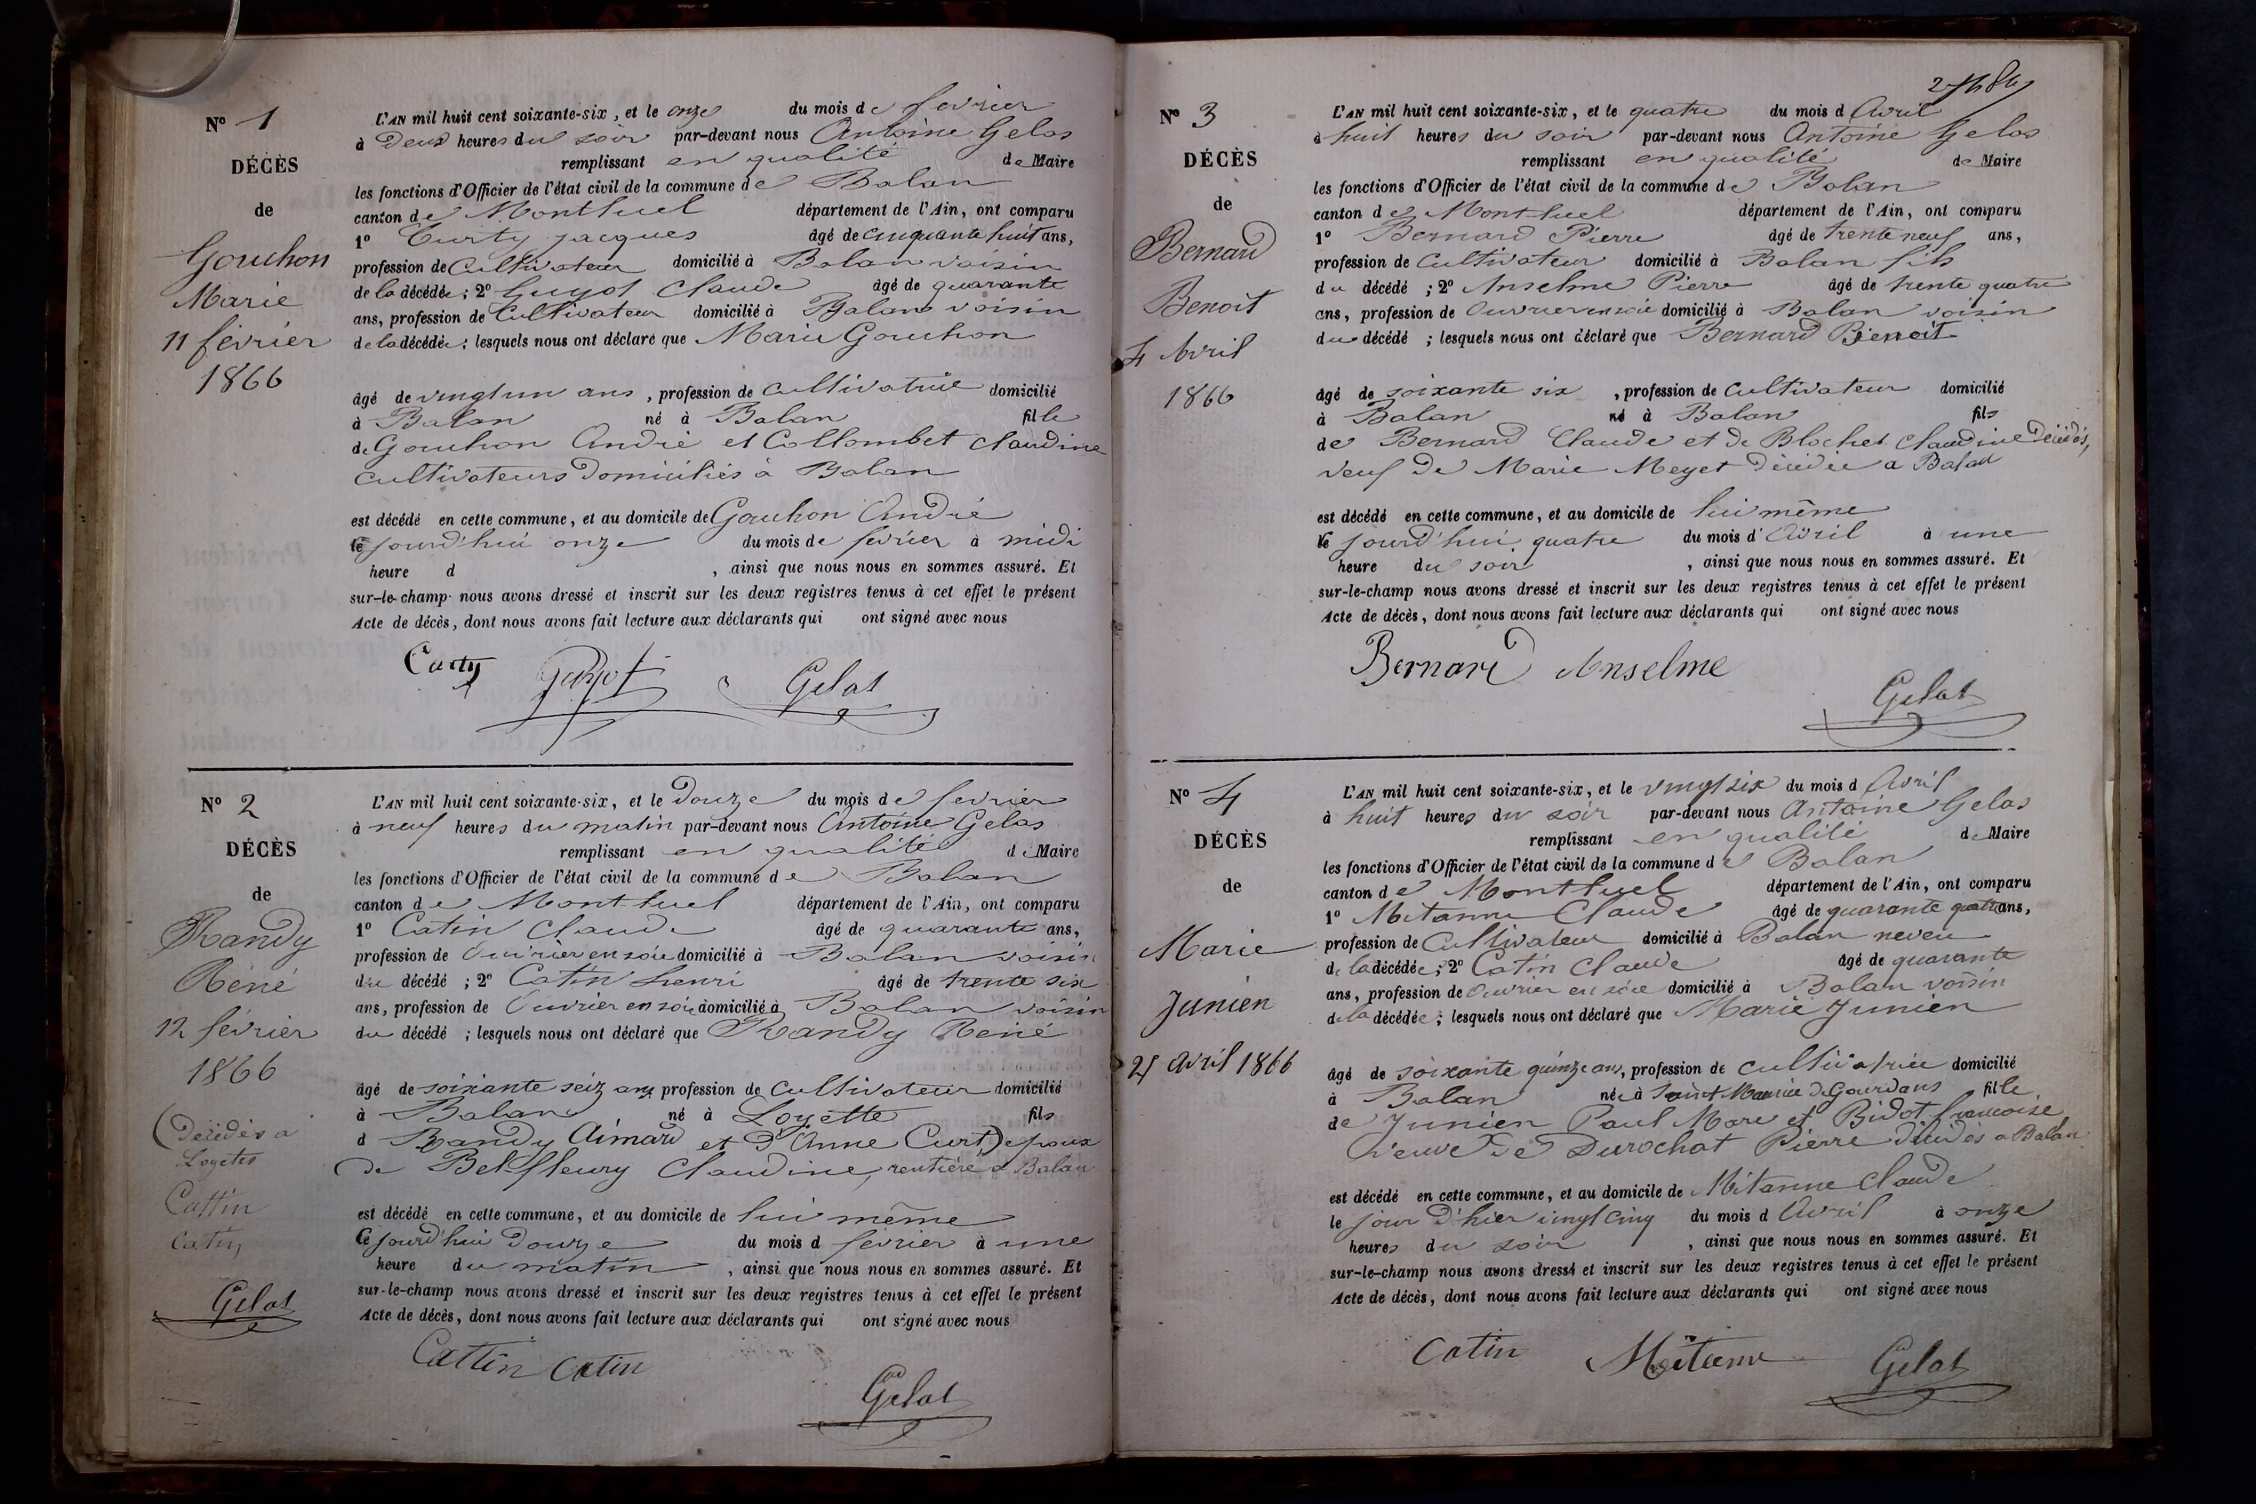 N° 1
DÉCÈS
de
Gouchon
Marie
11 février
1866
L'AN mil huit cent soixante-six, et le onze du mois de fevrier
à Deux heures du soir par-devant nous Antoine Gelas
remplissant en qualité de Maire
les fonctions d'Officier de l'état civil de la commune de Balan
canton de Montluel département de l'Ain, ont comparu
1° Curty jacques âgé de cinquante huit ans,
profession de Cultivateur domicilié à Balan voisin
de la décédée; 2° Guyot Claude âgé de quarante
ans, profession de Cultivateur domicilié à Balan voisin
de la décédée; lesquels nous ont déclaré que Marie Gouchon
âgé de vingt un ans, profession de cultivatrice domicilié
à Balan né à Balan fille
de Gouchon André et Collombet Claudine
cultivateurs domiciliés à Balan
est décédé en cette commune, et au domicile de Gouchon André
le jourd'hui onze du mois de fevrier à midi
heure d , ainsi que nous nous en sommes assuré. Et
sur-le-champ nous avons dressé et inscrit sur les deux registres tenus à cet effet le présent
Acte de décès, dont nous avons fait lecture aux déclarants qui ont signé avec nous
Curty Guyot Gelas
N° 2
DÉCÈS
de
Randy
Réné
12 février
1866
(Décédés a
Loyettes
Cattin
Catin
Gelas
L'AN mil huit cent soixante-six, et le Douze du mois de fevrier
à neuf heures du matin par-devant nous Antoine Gelas
remplissant en qualité de Maire
les fonctions d'Officier de l'état civil de la commune de Balan
canton de Montluel département de l'Ain, ont comparu
1° Catin Claude âgé de quarante ans,
profession de Ouvrier en soie domicilié à Balan voisin
du décédé; 2° Catin henri âgé de trente six
ans, profession de Ouvrier en soie domicilié à Balan voisin
du décédé; lesquels nous ont déclaré que Randy René
âgé de soixante seiz ans profession de Cultivateur domicilié
à Balan né à Loyette fils
d Randy Aimard et d'Anne Curt) epoux
de Bel-fleury Claudine, rentière a Balan
est décédé en cette commune, et au domicile de lui même
Ce jourd'hui Douze du mois d fevrier à une
heure du matin, ainsi que nous nous en sommes assuré. Et
sur-le-champ nous avons dressé et inscrit sur les deux registres tenus à cet effet le présent
Acte de décès, dont nous avons fait lecture aux déclarants qui ont signé avec nous
Cattin Catin
Gelas
N° 3
DÉCÈS
de
Bernard
Benoit
4 Avril
1866
L'AN mil huit cent soixante-six, et le quatre du mois d Avril
à huit heures du soir par-devant nous Antoine Gelas
remplissant en qualité de Maire
les fonctions d'Officier de l'état civil de la commune de Balan
canton de Montluel département de l'Ain, ont comparu
1° Bernard Pierre âgé de trente neuf ans,
profession de Cultivateur domicilié à Balan fils
du décédé; 2° Anselme Pierre âgé de trente quatre
ans, profession de Ouvrier en soie domicilié à Balan voisin
du décédé; lesquels nous ont déclaré que Bernard Benoit
âgé de soixante six, profession de Cultivateur domicilié
à Balan né à Balan fils
de Bernard Claude et de Blochet Claudine Décédés,
veuf de Marie Meyet décédée a Balan
est décédé en cette commune, et au domicile de lui même
le jourd'hui quatre du mois d'Avril à une
heure du soir, ainsi que nous nous en sommes assuré. Et
sur-le-champ nous avons dressé et inscrit sur les deux registres tenus à cet effet le présent
Acte de décès, dont nous avons fait lecture aux déclarants qui ont signé avec nous
Bernard Anselme
Gelas
N° 4
DÉCÈS
de
Marie
Junien
25 avril 1866
L'AN mil huit cent soixante-six, et le vingt six du mois d Avril
à huit heures du soir par-devant nous Antoine Gelas
remplissant en qualité de Maire
les fonctions d'Officier de l'état civil de la commune de Balan
canton de Montluel département de l'Ain, ont comparu
1° Mitanne Claude âgé de quarante quatre ans,
profession de Cultivateur domicilié à Balan neveu
de la décédée; 2° Catin Claude âgé de quarante
ans, profession de Ouvrier en soie domicilié à Balan voisin
de la décédée; lesquels nous ont déclaré que Marie Junien
âgé de soixante quinze ans, profession de cultivatrice domicilié
à Balan née à Saint Maurice de Gourdans fille
de Junien Paul Marc et Bidot francoise
veuve de Durochat Pierre décédés a Balan
est décédé en cette commune, et au domicile de Mitanne Claude
le jour d'hier vingt cinq du mois d Avril à onze
heures du soir, ainsi que nous nous en sommes assuré. Et
sur-le-champ nous avons dressé et inscrit sur les deux registres tenus à cet effet le présent
Acte de décès, dont nous avons fait lecture aux déclarants qui ont signé avec nous
Catin Mitanne Gelas